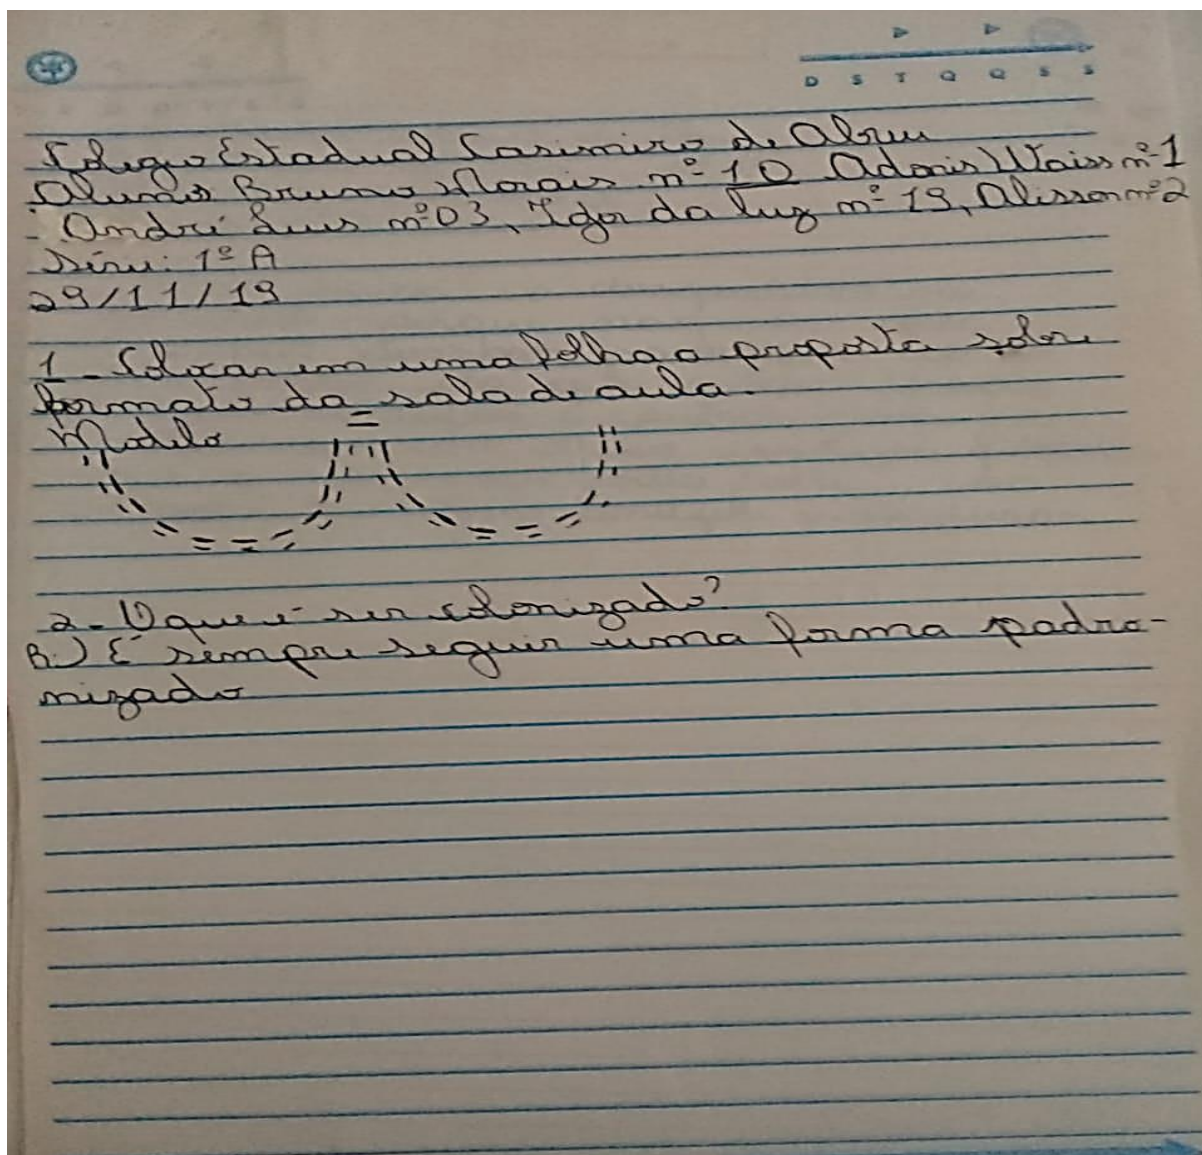 D S T Q Q S S
Colegio Estadual Casimiro de Abreu
Alunos Bruno Morais nº 10 Adonis Waiss nº 1
- André Luis nº 03, Igor da luz nº 19, Alisson nº 2
Série: 1º A
29/11/19
1 - Colocar em uma folha a proposta sobre
formato da sala de aula.
Modelo
2 - O que é ser colonizado?
R:) É sempre seguir uma forma padro-
nizado